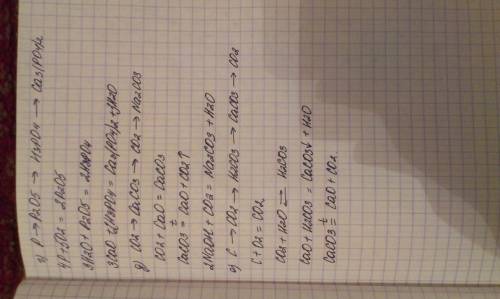 г) P → P2O5 → H3PO4 → Ca3(PO4)2
4P + 5O2 = 2P2O5
3H2O + P2O5 = 2H3PO4
3CaO + 2H3PO4 = Ca3(PO4)2 + 3H2O
CaCO3 → CO2 → Na2CO3
CO2 + CaO = CaCO3
CaCO3 t= CaO + CO2↑
2NaOH + CO2 = Na2CO3 + H2O
е) C → CO2 → H2CO3 → CaCO3 → CO2
C + O2 = CO2
CO2 + H2O ⇄ H2CO3
CaO + H2CO3 = CaCO3↓ + H2O
CaCO3 t= CaO + CO2